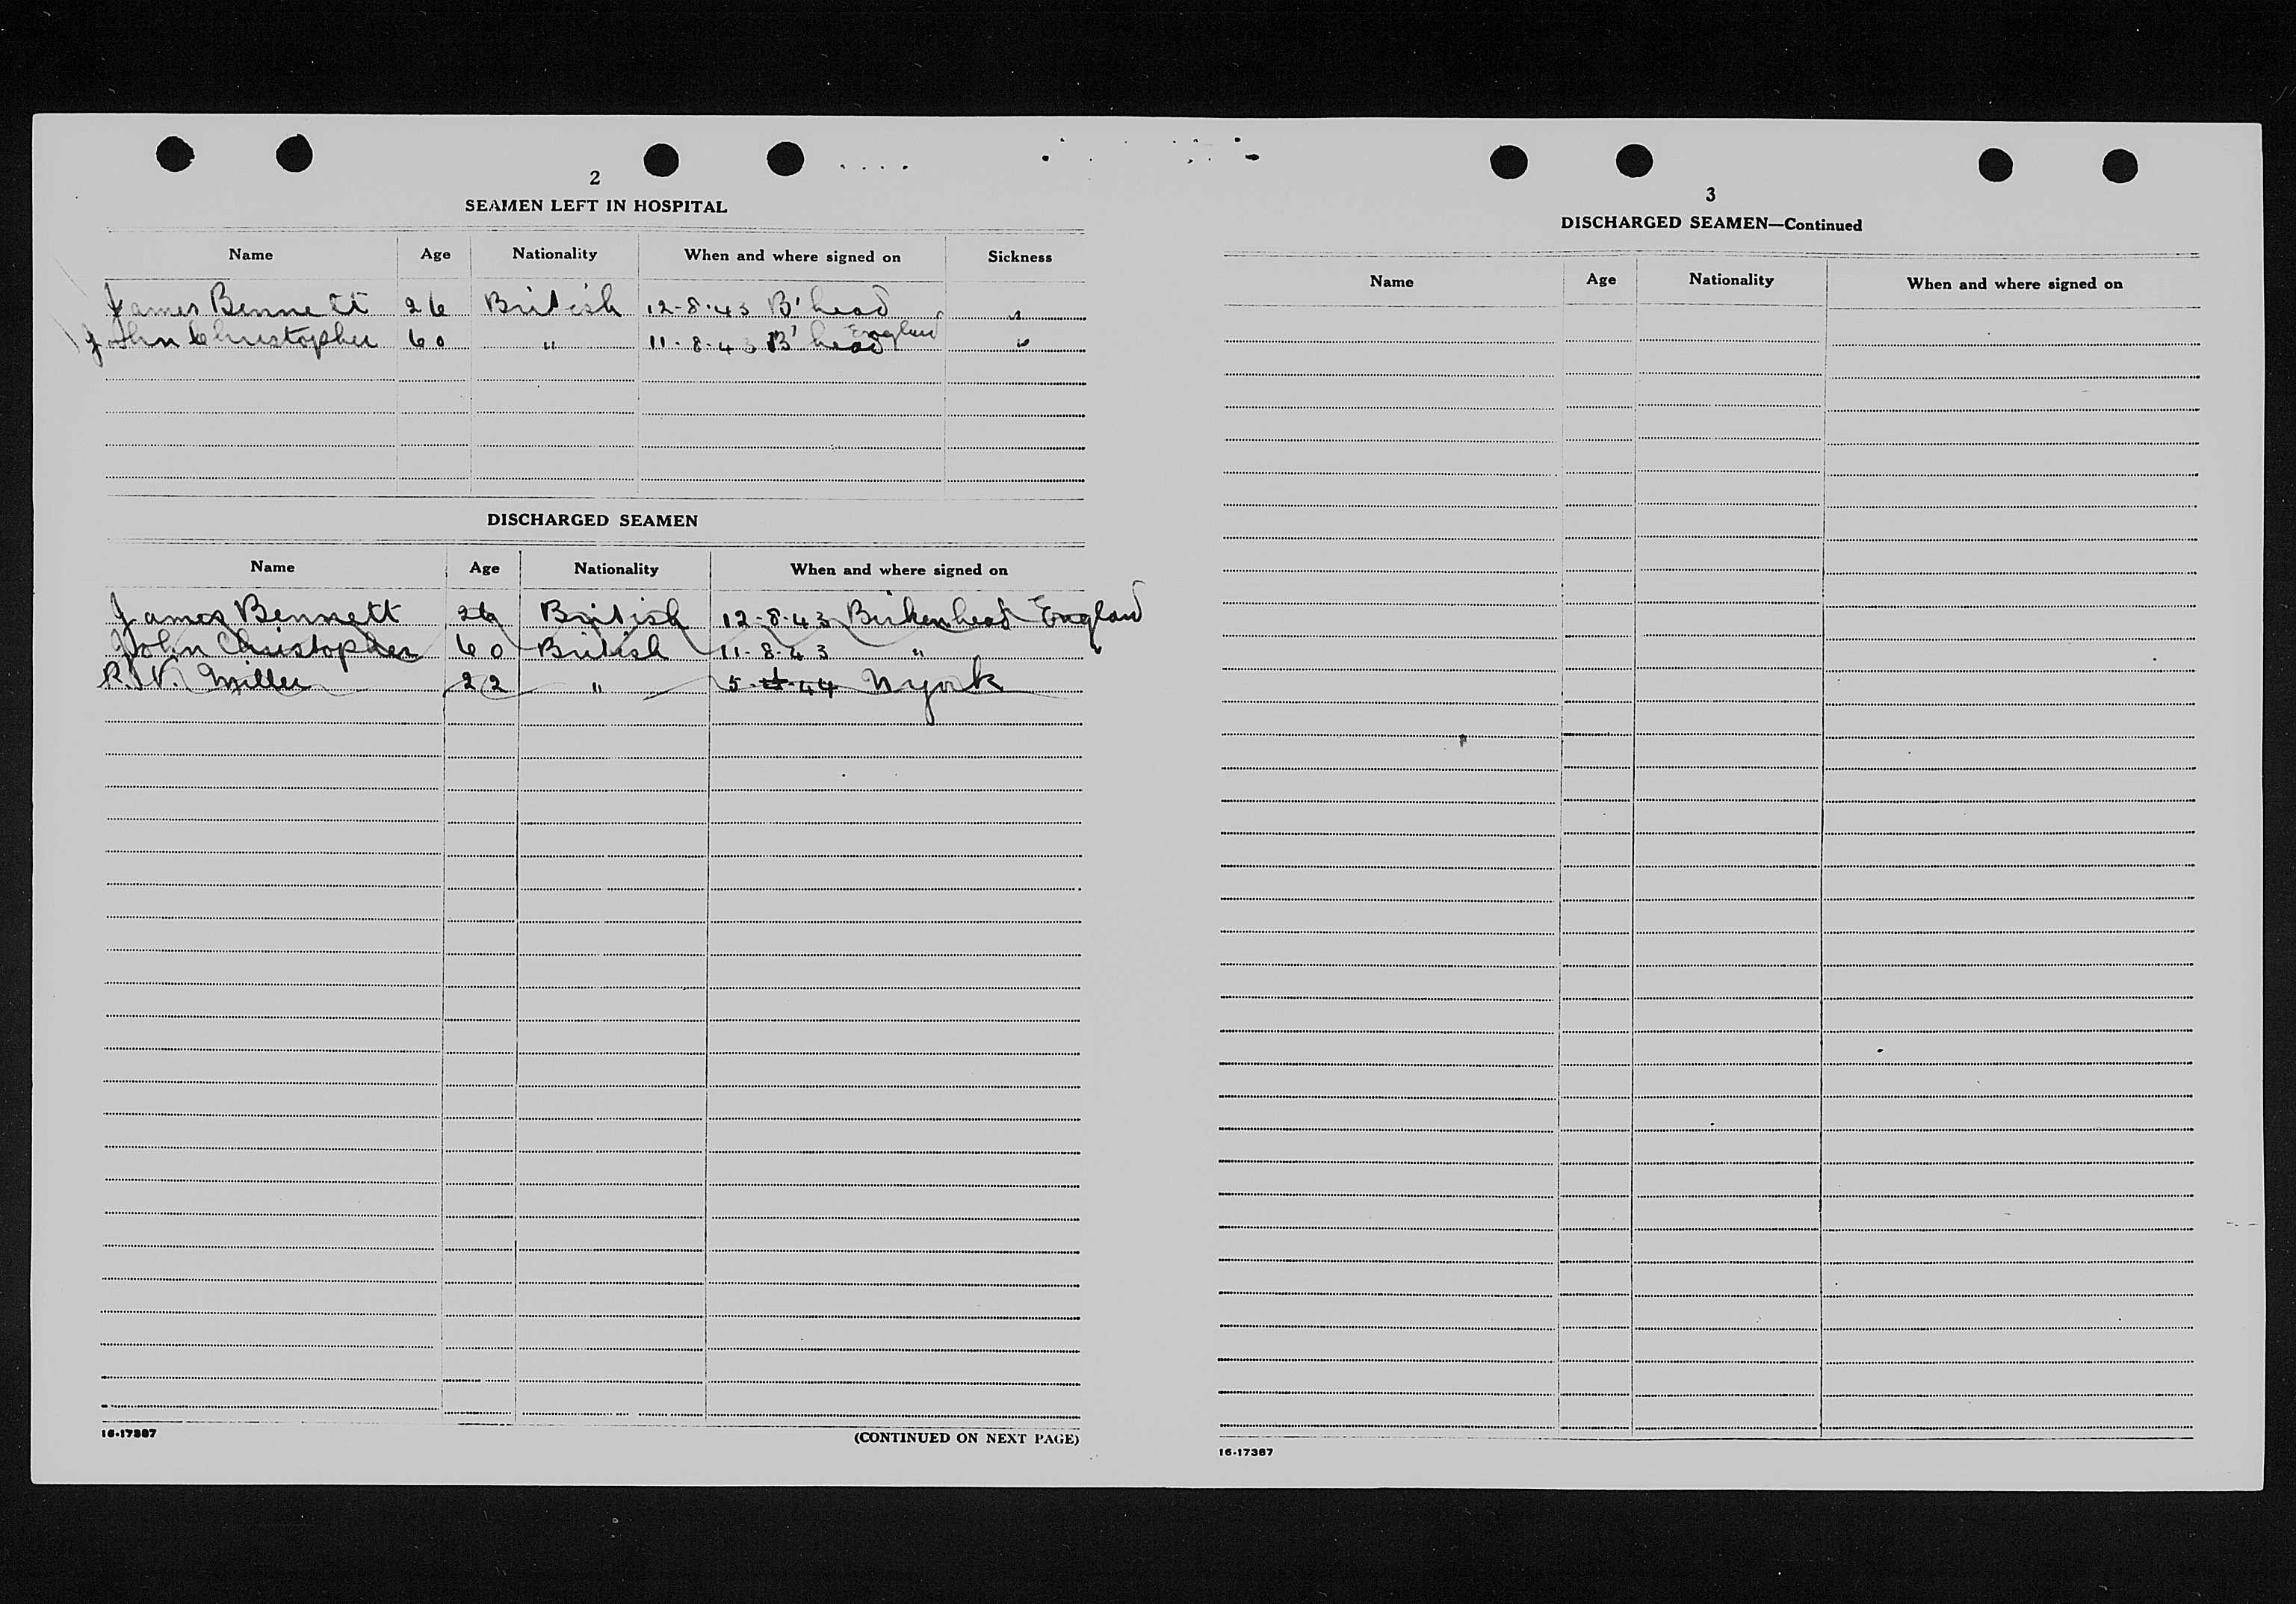 2
SEAMEN LEFT IN HOSPITAL
Name Age Nationality When and where signed on Sickness
James Bennett 26 British 12-8-43 B'head "
England
John Christopher 60 " 11-8-43 B'head "
DISCHARGED SEAMEN
Name Age Nationality When and where signed on
James Bennett 26 British 12-8-43 Birkenhead England
John Christopher 60 British 11-8-43 "
R.V. Miller 22 " 5- -44 NYork
16-17387
(CONTINUED ON NEXT PAGE)
3
DISCHARGED SEAMEN—Continued
Name Age Nationality When and where signed on
16-17387